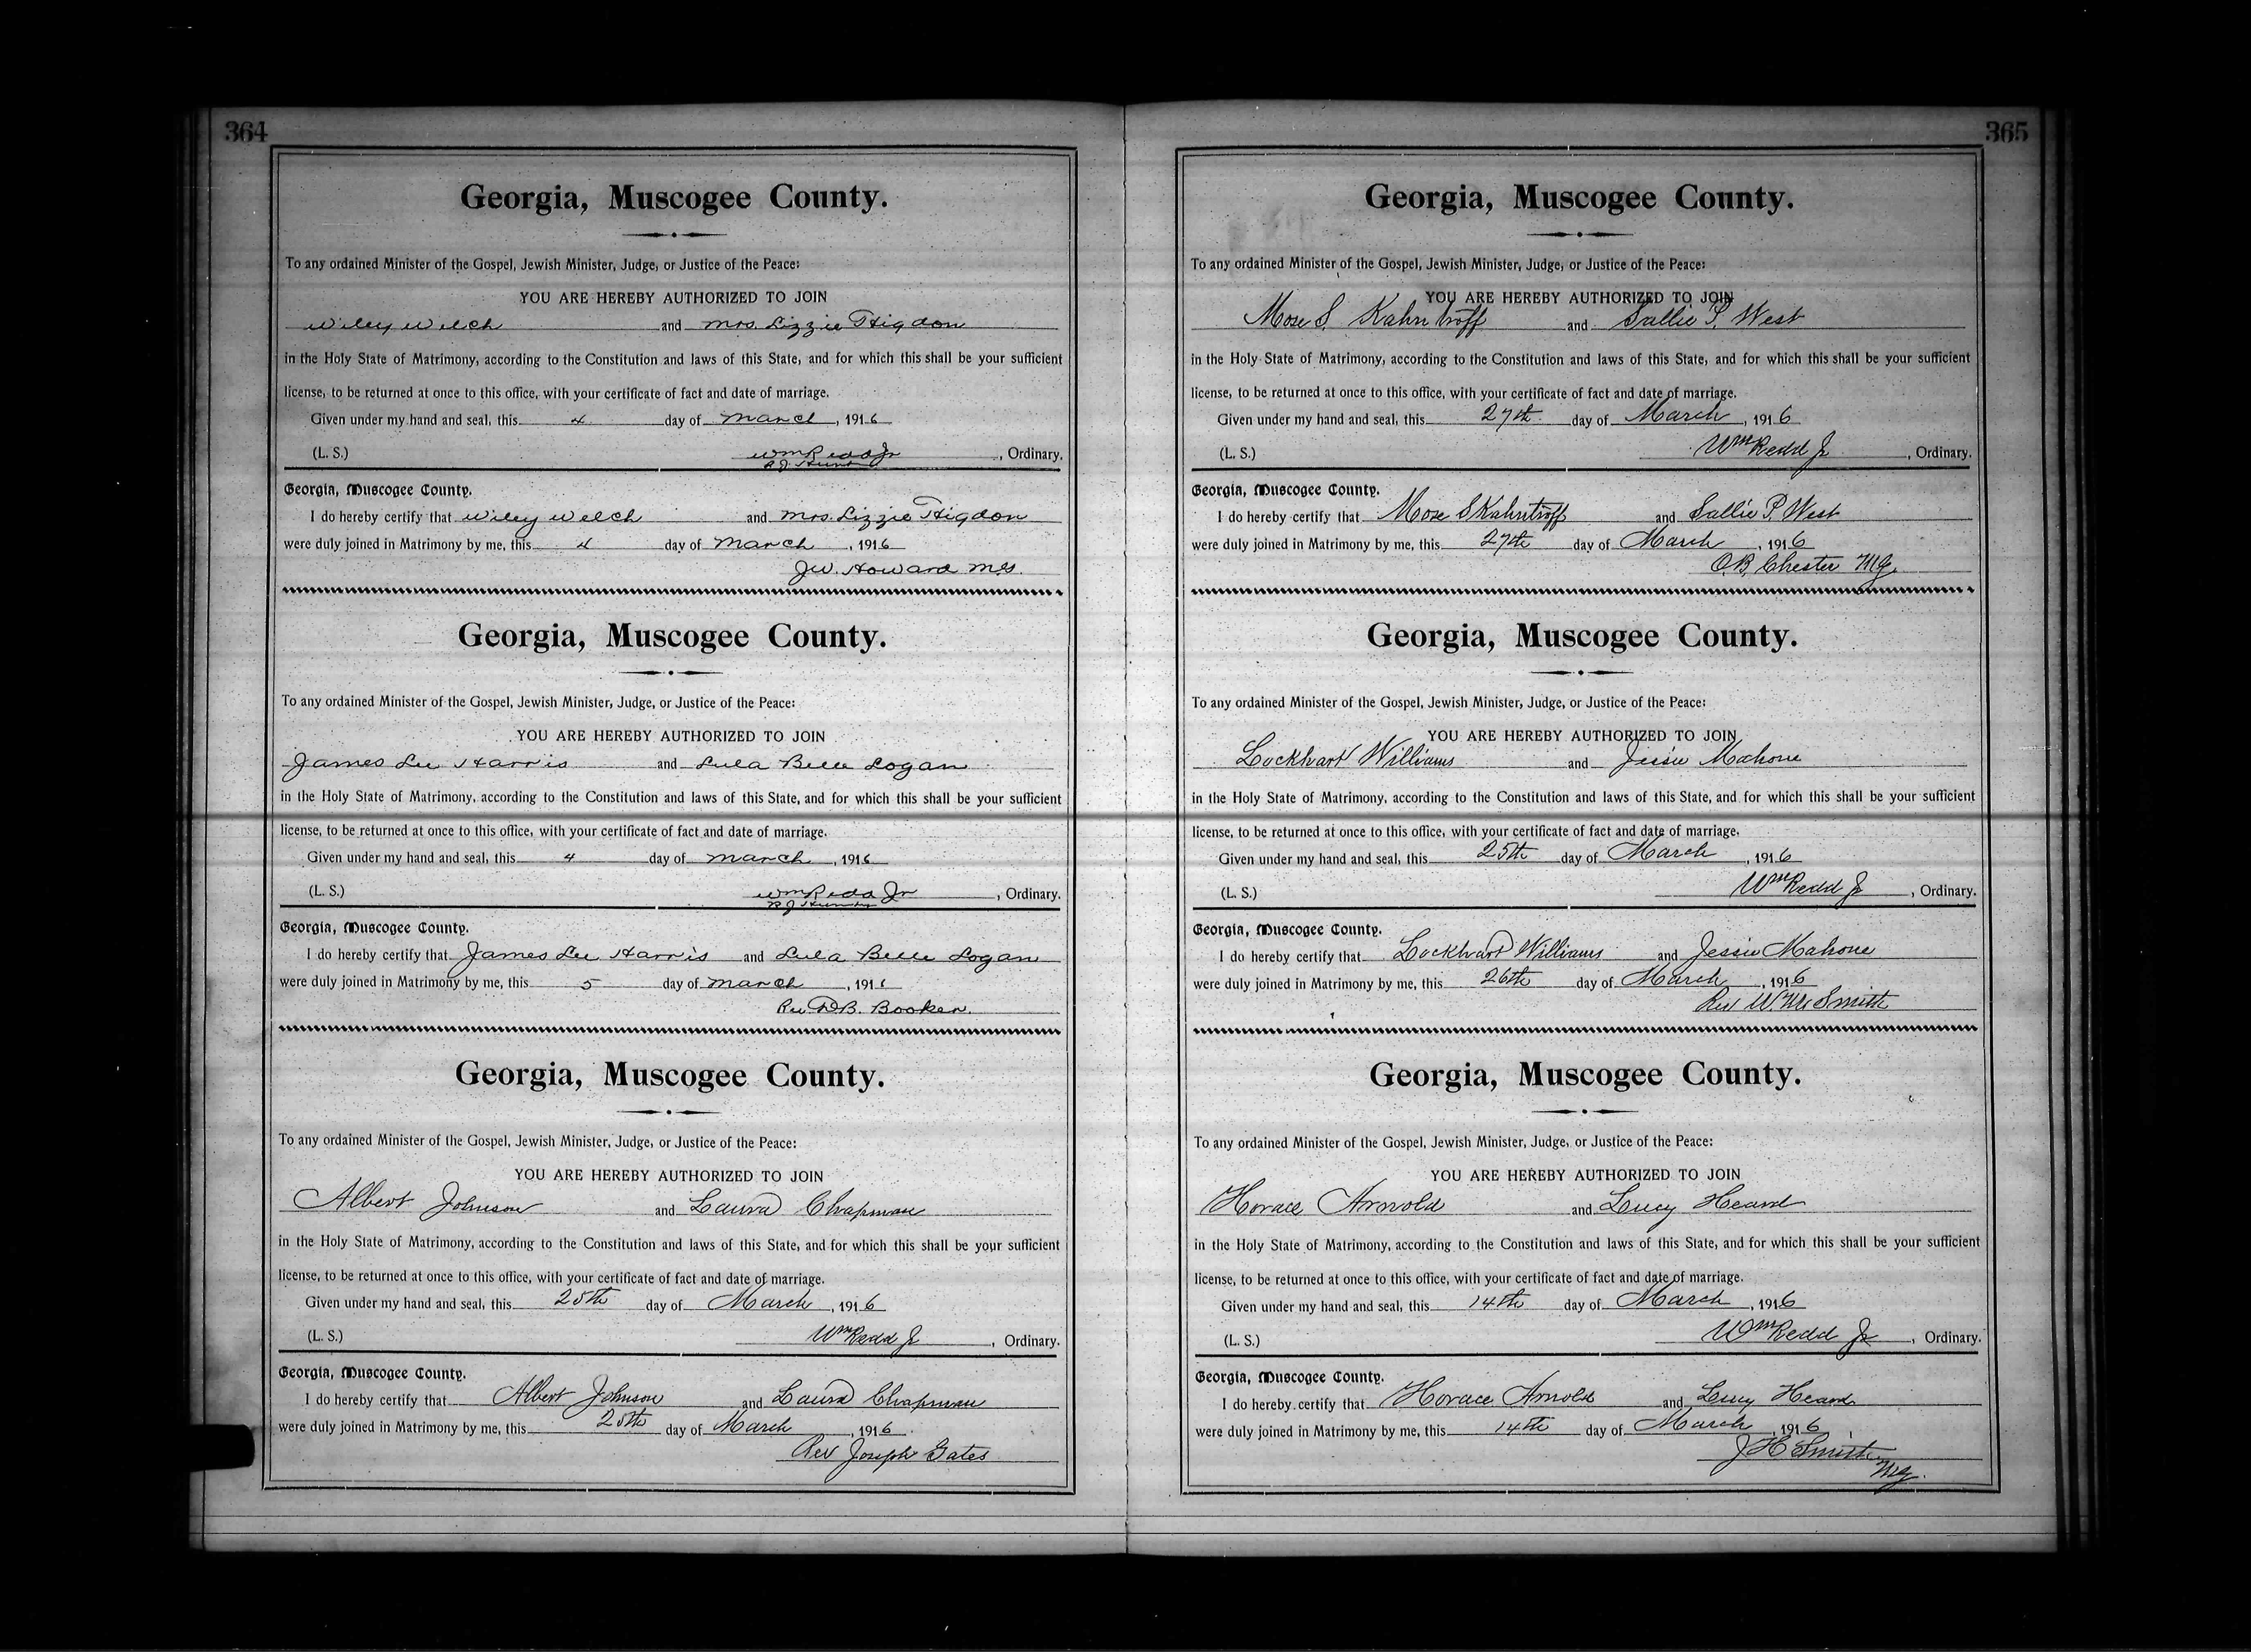 364
Georgia, Muscogee County.
To any ordained Minister of the Gospel, Jewish Minister, Judge, or Justice of the Peace:
YOU ARE HEREBY AUTHORIZED TO JOIN
Wiley Welch and Mrs. Lizzie Higdon
in the Holy State of Matrimony, according to the Constitution and laws of this State, and for which this shall be your sufficient
license, to be returned at once to this office, with your certificate of fact and date of marriage.
Given under my hand and seal, this 4 day of March, 1916
(L. S.) Wm Redd Jr, Ordinary.
Georgia, Muscogee County.
I do hereby certify that Wiley Welch and Mrs. Lizzie Higdon
were duly joined in Matrimony by me, this 4 day of March, 1916
J.W. Howard M.G.
Georgia, Muscogee County.
To any ordained Minister of the Gospel, Jewish Minister, Judge, or Justice of the Peace:
YOU ARE HEREBY AUTHORIZED TO JOIN
James Lee Harris and Lula Belle Logan
in the Holy State of Matrimony, according to the Constitution and laws of this State, and for which this shall be your sufficient
license, to be returned at once to this office, with your certificate of fact and date of marriage.
Given under my hand and seal, this 4 day of March, 1916
(L. S.) Wm Redd Jr, Ordinary.
Georgia, Muscogee County.
I do hereby certify that James Lee Harris and Lula Belle Logan
were duly joined in Matrimony by me, this 5 day of March, 1916
Rev D.B. Booker.
Georgia, Muscogee County.
To any ordained Minister of the Gospel, Jewish Minister, Judge, or Justice of the Peace:
YOU ARE HEREBY AUTHORIZED TO JOIN
Albert Johnson and Laura Chapman
in the Holy State of Matrimony, according to the Constitution and laws of this State, and for which this shall be your sufficient
license, to be returned at once to this office, with your certificate of fact and date of marriage.
Given under my hand and seal, this 25th day of March, 1916
(L. S.) Wm Redd Jr, Ordinary.
Georgia, Muscogee County.
I do hereby certify that Albert Johnson and Laura Chapman
were duly joined in Matrimony by me, this 25th day of March, 1916
Rev Joseph Gates
365
Georgia, Muscogee County.
To any ordained Minister of the Gospel, Jewish Minister, Judge, or Justice of the Peace:
YOU ARE HEREBY AUTHORIZED TO JOIN
Mose S. Kahntroff and Sallie P. West
in the Holy State of Matrimony, according to the Constitution and laws of this State, and for which this shall be your sufficient
license, to be returned at once to this office, with your certificate of fact and date of marriage.
Given under my hand and seal, this 27th day of March, 1916
(L. S.) Wm Redd Jr, Ordinary.
Georgia, Muscogee County.
I do hereby certify that Mose S Kahntroff and Sallie P. West
were duly joined in Matrimony by me, this 27th day of March, 1916
O.B. Chester M.G.
Georgia, Muscogee County.
To any ordained Minister of the Gospel, Jewish Minister, Judge, or Justice of the Peace:
YOU ARE HEREBY AUTHORIZED TO JOIN
Lockhart Williams and Jessie Mahone
in the Holy State of Matrimony, according to the Constitution and laws of this State, and for which this shall be your sufficient
license, to be returned at once to this office, with your certificate of fact and date of marriage.
Given under my hand and seal, this 25th day of March, 1916
(L. S.) Wm Redd Jr, Ordinary.
Georgia, Muscogee County.
I do hereby certify that Lockhart Williams and Jessie Mahone
were duly joined in Matrimony by me, this 26th day of March, 1916
Rev W.M. Smith
Georgia, Muscogee County.
To any ordained Minister of the Gospel, Jewish Minister, Judge, or Justice of the Peace:
YOU ARE HEREBY AUTHORIZED TO JOIN
Horace Arnold and Lucy Heard
in the Holy State of Matrimony, according to the Constitution and laws of this State, and for which this shall be your sufficient
license, to be returned at once to this office, with your certificate of fact and date of marriage.
Given under my hand and seal, this 14th day of March, 1916
(L. S.) Wm Redd Jr, Ordinary.
Georgia, Muscogee County.
I do hereby certify that Horace Arnold and Lucy Heard
were duly joined in Matrimony by me, this 14th day of March, 1916
J H Smith
M.G.